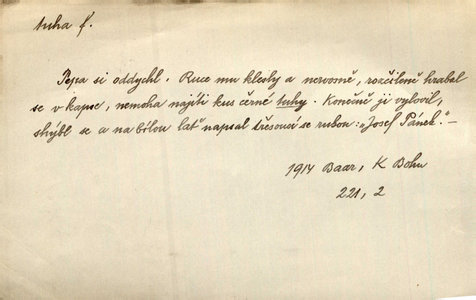 tuha f.
Pejca si oddychl. Ruce mu klesly a nervosně, rozčileně hrabal
se v kapse, nemoha najíti kus černé tuhy. Konečně ji vylovil,
shýbl se a na bílou lať napsal třesoucí se rukou: „Josef Pánek.“ —
1914 Baar, K Bohu
221, 2